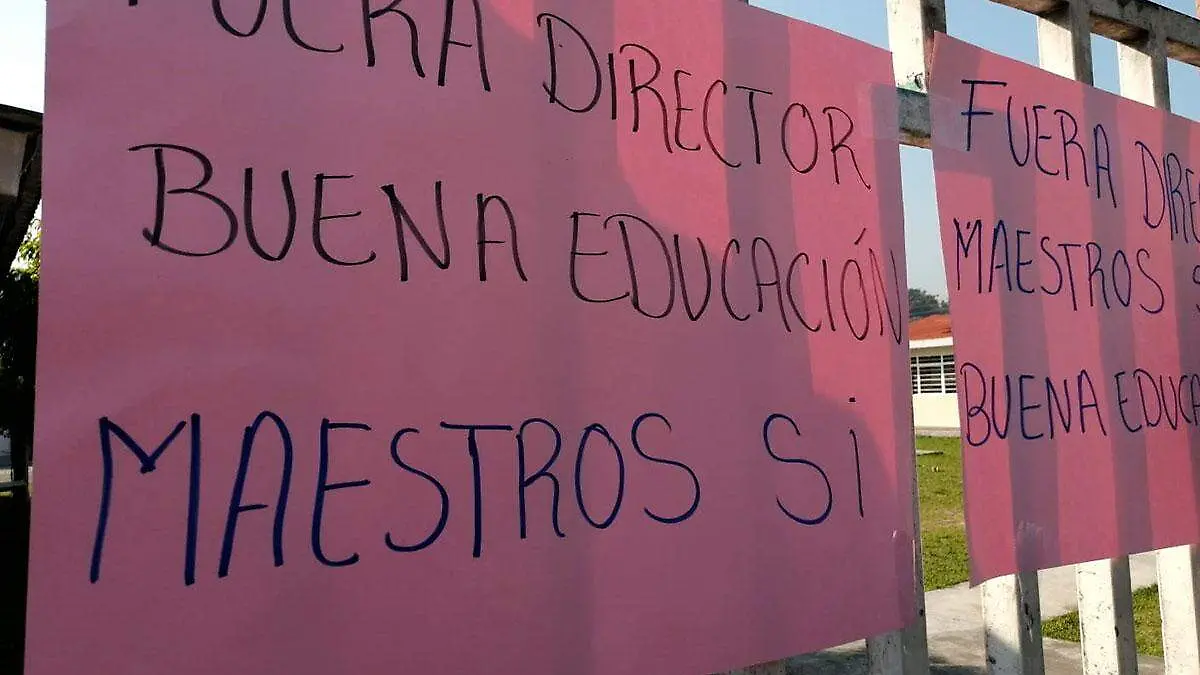 FUERA DIRECTOR
BUENA EDUCACIÓN
MAESTROS Si
FUERA DIREC
MAESTROS S
BUENA EDUCA